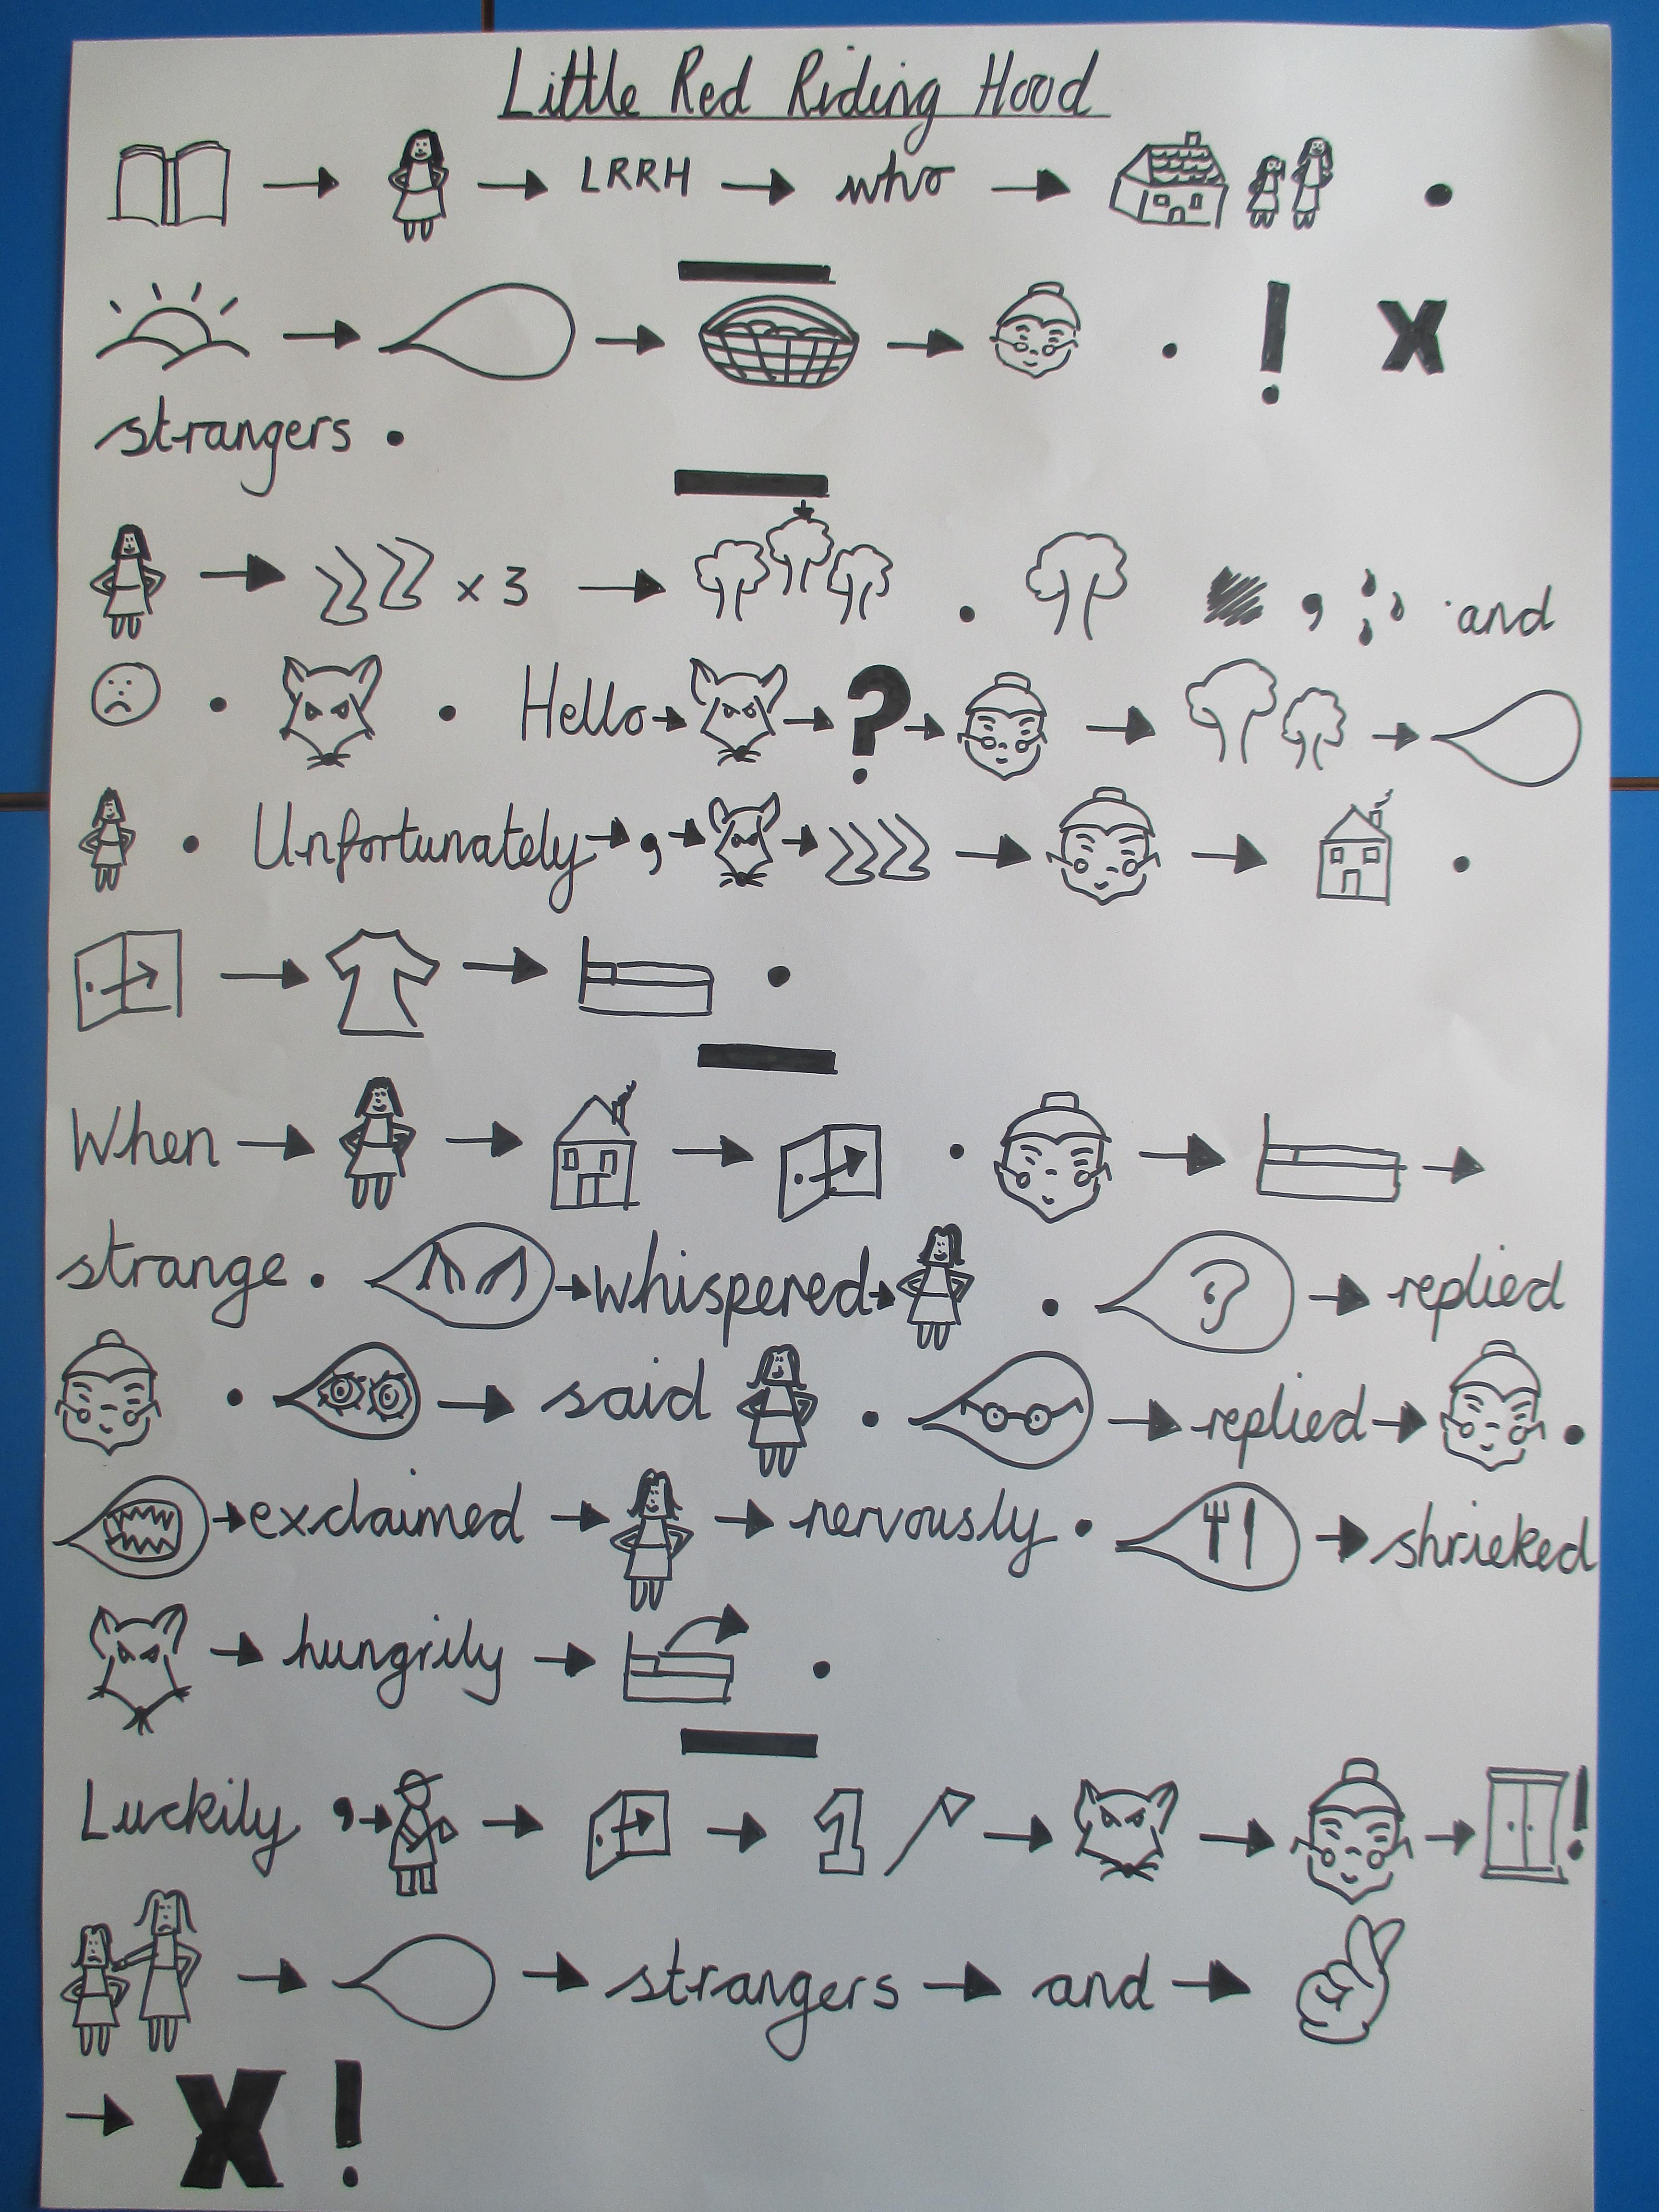 Little Red Riding Hood
LRRH who .
! X
strangers .
x 3 . , and
. . Hello ?
. Unfortunately , .
.
When .
strange . whispered . replied
. said . replied .
exclaimed nervously . shrieked
hungrily .
Luckily , 1 !
strangers and
X !